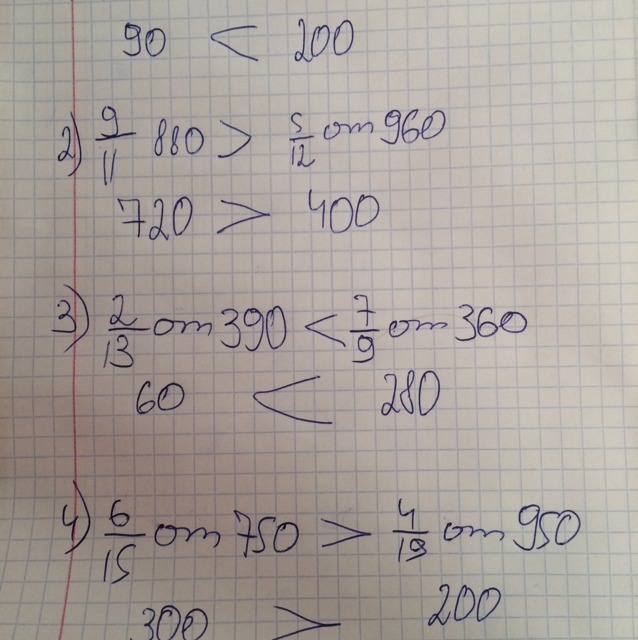 90 < 200
2) 9/11 880 > 5/12 от 960
720 > 400
3) 2/13 от 390 < 7/9 от 360
60 < 280
4) 6/15 от 750 > 4/19 от 950
300 > 200